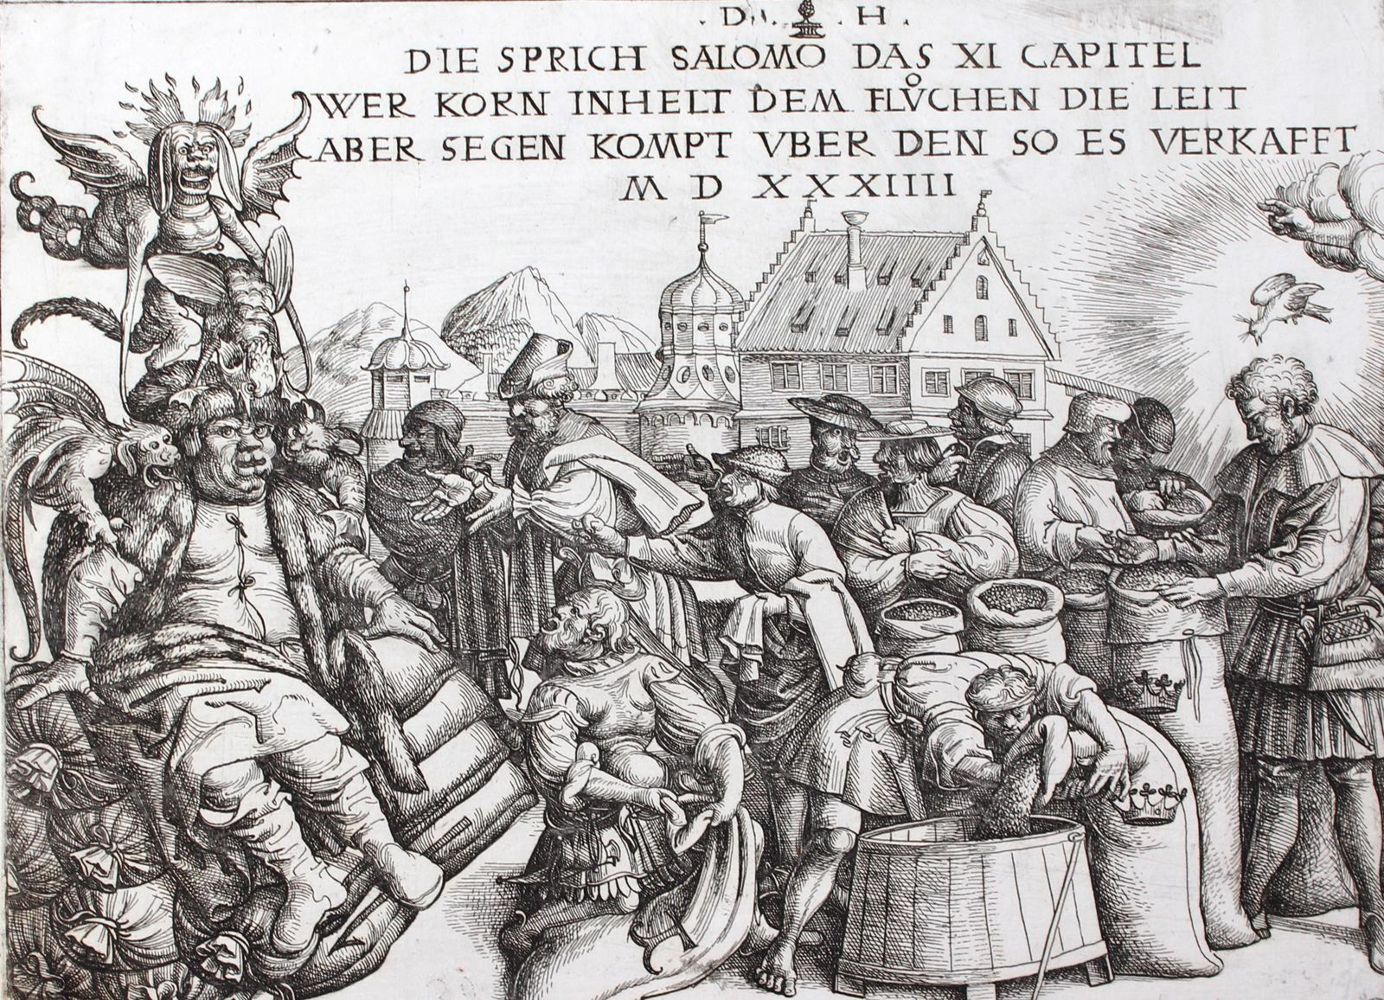 · D · H ·
DIE SPRICH SALOMO DAS XI CAPITEL
WER KORN INHELT DEM FLVͦCHEN DIE LEIT
ABER SEGEN KOMPT VBER DEN SO ES VERKAFFT
M D XXXIIII